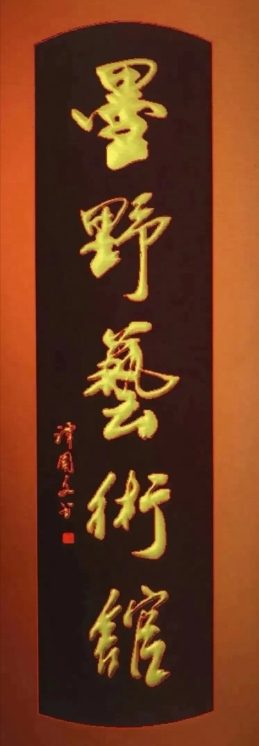 墨野藝術館